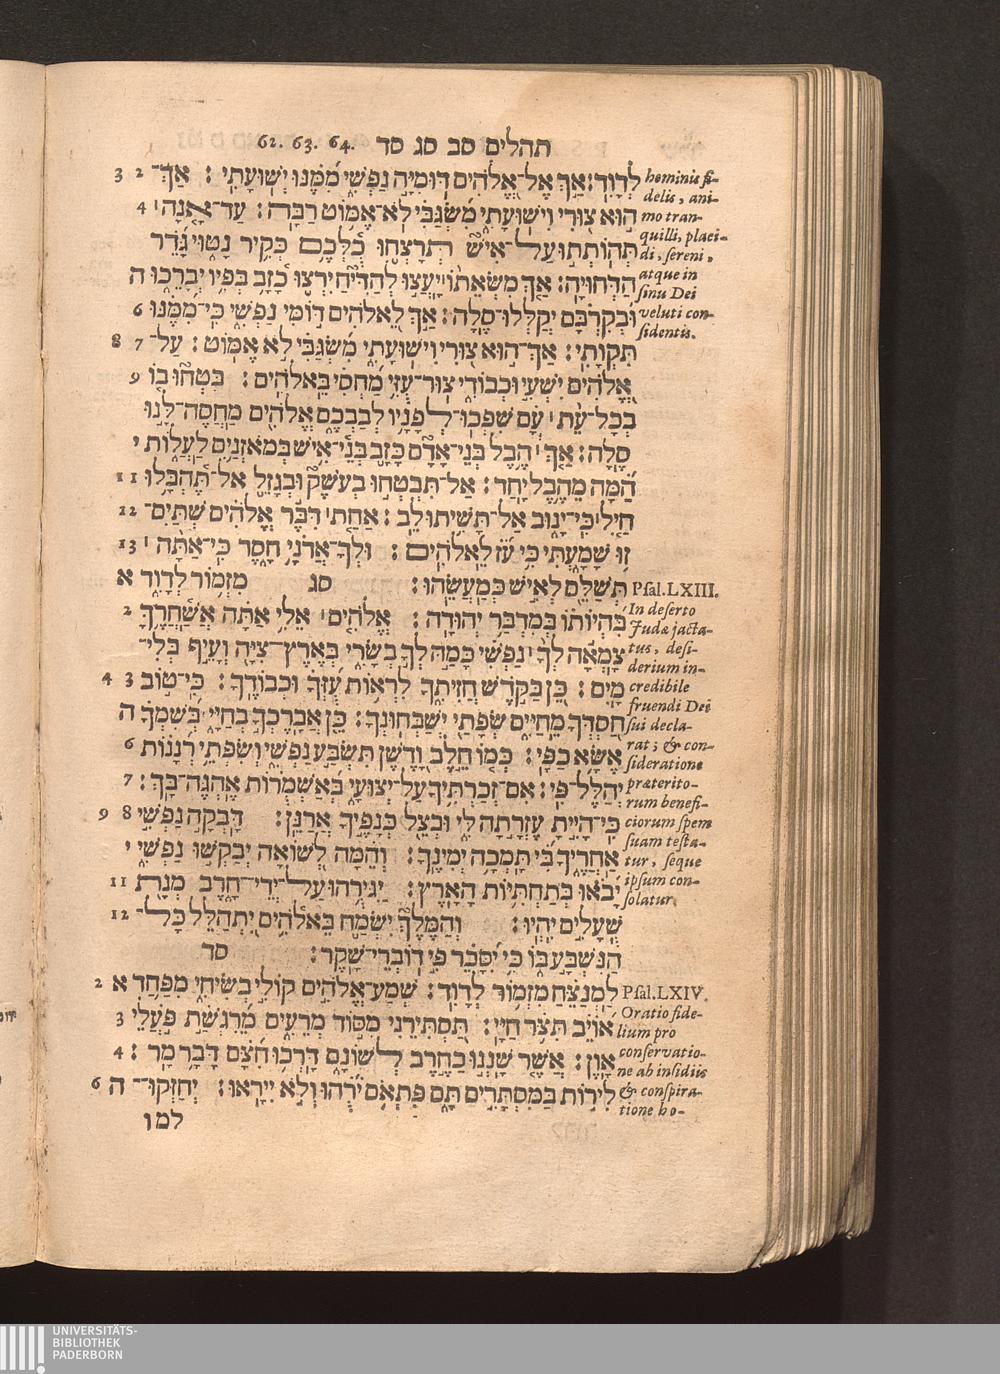 תהלים סב סג סד 62. 63. 64.
לְדָוִד׃ אַךְ אֶל־אֱלֹהִים דּוּמִיָּה נַפְשִׁי מִמֶּנּוּ יְשׁוּעָתִי׃ אַךְ־ 2 3
הוּא צוּרִי וִישׁוּעָתִי מִשְׂגַּבִּי לֹא־אֶמּוֹט רַבָּה׃ עַד־אָנָה׀ 4
תְּהוֹתְתוּ עַל־אִישׁ תְּרָצְּחוּ כֻלְּכֶם כְּקִיר נָטוּי גָּדֵר
הַדְּחוּיָה׃ אַךְ מִשְּׂאֵתוֹ׀ יָעֲצוּ לְהַדִּיחַ יִרְצוּ כָזָב בְּפִיו יְבָרֵכוּ ה
וּבְקִרְבָּם יְקַלְלוּ־סֶלָה׃ אַךְ לֵאלֹהִים דּוֹמִּי נַפְשִׁי כִּי־מִמֶּנּוּ 6
תִּקְוָתִי׃ אַךְ־הוּא צוּרִי וִישׁוּעָתִי מִשְׂגַּבִּי לֹא אֶמּוֹט׃ עַל־ 7 8
אֱלֹהִים יִשְׁעִי וּכְבוֹדִי צוּר־עֻזִּי מַחְסִי בֵּאלֹהִים׃ בִּטְחוּ בוֹ 9
בְכָל־עֵת׀ עָם שִׁפְכוּ־לְפָנָיו לְבַבְכֶם אֱלֹהִים מַחֲסֶה־לָּנוּ
סֶלָה׃ אַךְ׀ הֶבֶל בְּנֵי־אָדָם כָּזָב בְּנֵי־אִישׁ בְּמֹאזְנַיִם לַעֲלוֹת י
הֵמָּה מֵהֶבֶל יָחַד׃ אַל־תִּבְטְחוּ בְעֹשֶׁק וּבְגָזֵל אַל־תֶּהְבָּלוּ 11
חַיִל׀ כִּי־יָנוּב אַל־תָּשִׁיתוּ לֵב׃ אַחַת׀ דִּבֶּר אֱלֹהִים שְׁתַּיִם־ 12
זוּ שָׁמָעְתִּי כִּי עֹז לֵאלֹהִים׃ וּלְךָ־אֲדֹנָי חָסֶד כִּי־אַתָּה׀ 13
תְשַׁלֵּם לְאִישׁ כְּמַעֲשֵׂהוּ׃ סג מִזְמוֹר לְדָוִד א
בִּהְיוֹתוֹ בְּמִדְבַּר יְהוּדָה׃ אֱלֹהִים׀ אֵלִי אַתָּה אֲשַׁחֲרֶךָּ 2
צָמְאָה לְךָ׀ נַפְשִׁי כָּמַהּ לְךָ בְשָׂרִי בְּאֶרֶץ־צִיָּה וְעָיֵף בְּלִי־
מָיִם׃ כֵּן בַּקֹּדֶשׁ חֲזִיתִךָ לִרְאוֹת עֻזְּךָ וּכְבוֹדֶךָ׃ כִּי־טוֹב 3 4
חַסְדְּךָ מֵחַיִּים שְׂפָתַי יְשַׁבְּחוּנְךָ׃ כֵּן אֲבָרֶכְךָ בְחַיָּי בְּשִׁמְךָ ה
אֶשָּׂא כַפָּי׃ כְּמוֹ חֵלֶב וָדֶשֶׁן תִּשְׂבַּע נַפְשִׁי וְשִׂפְתֵי רְנָנוֹת 6
יְהַלֶּל־פִּי׃ אִם־זְכַרְתִּיךָ עַל־יְצוּעָי בְּאַשְׁמֻרוֹת אֶהְגֶּה־בָּךְ׃ 7
כִּי־הָיִיתָ עֶזְרָתָה לִּי וּבְצֵל כְּנָפֶיךָ אֲרַנֵּן׃ דָּבְקָה נַפְשִׁי 8 9
אַחֲרֶיךָ בִּי תָּמְכָה יְמִינֶךָ׃ וְהֵמָּה לְשׁוֹאָה יְבַקְשׁוּ נַפְשִׁי י
יָבֹאוּ בְּתַחְתִּיּוֹת הָאָרֶץ׃ יַגִּירֻהוּ עַל־יְדֵי־חָרֶב מְנָת 11
שֻׁעָלִים יִהְיוּ׃ וְהַמֶּלֶךְ יִשְׂמַח בֵּאלֹהִים יִתְהַלֵּל כָּל־ 12
הַנִּשְׁבָּע בּוֹ כִּי יִסָּכֵר פִּי דוֹבְרֵי־שָׁקֶר׃ סד
לַמְנַצֵּחַ מִזְמוֹר לְדָוִד׃ שְׁמַע־אֱלֹהִים קוֹלִי בְשִׂיחִי מִפַּחַד א 2
אוֹיֵב תִּצֹּר חַיָּי׃ תַּסְתִּירֵנִי מִסּוֹד מְרֵעִים מֵרִגְשַׁת פֹּעֲלֵי 3
אָוֶן׃ אֲשֶׁר שָׁנְנוּ כַחֶרֶב לְשׁוֹנָם דָּרְכוּ חִצָּם דָּבָר מָר׃ 4
לִירוֹת בַּמִּסְתָּרִים תָּם פִּתְאֹם יֹרֻהוּ וְלֹא יִירָאוּ׃ יְחַזְּקוּ־ ה 6
למו
hominis fi-
delis, ani-
mo tran-
quilli, placi-
di, sereni,
atque in
sinu Dei
veluti con-
fidentis.
Psal. LXIII.
In deserto
Judæ jacta-
tus, desi-
derium in-
credibile
fruendi Dei
sui decla-
rat; & con-
sideratione
præterito-
rum benefi-
ciorum spem
suam testa-
tur, seque
ipsum con-
solatur.
Psal. LXIV.
Oratio fide-
lium pro
conservatio-
ne ab insidiis
& conspira-
tione ho-
UNIVERSITÄTS-
BIBLIOTHEK
PADERBORN